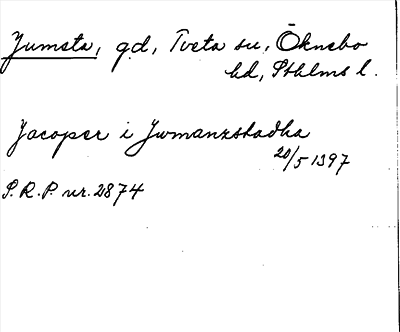 Jumsta, gd, Tveta sn, Öknebo
hd, Sthlms l.
Jacoper i Jwmanzstadha
20/5 1397
S.R.P. nr. 2874